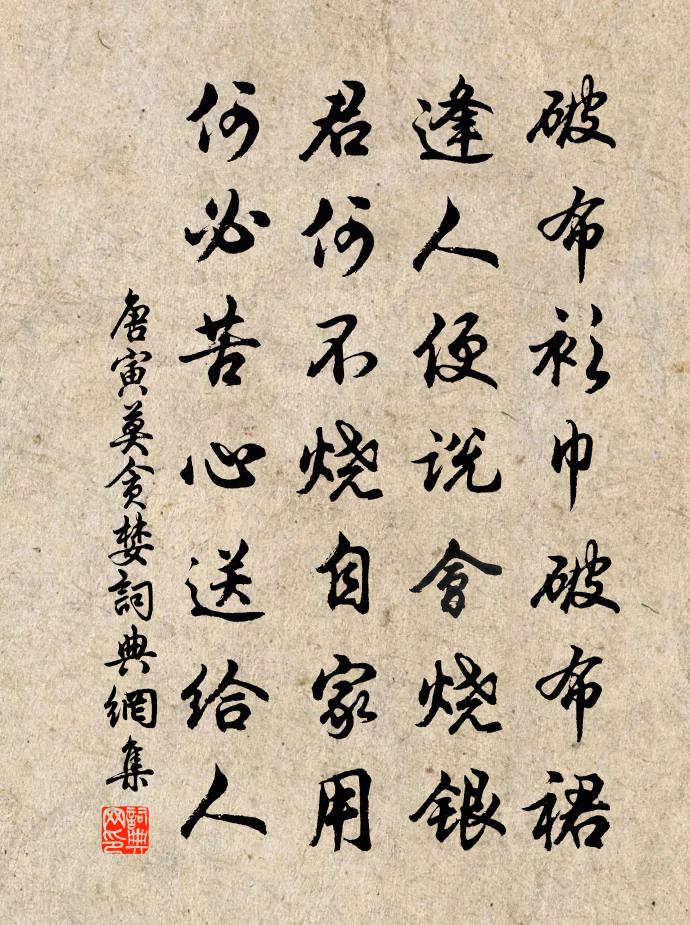 破布衫巾破布裙
逢人便说會烧銀
君何不烧自家用
何必苦心送给人
唐寅莫贪婪詞典網集
詞典网印